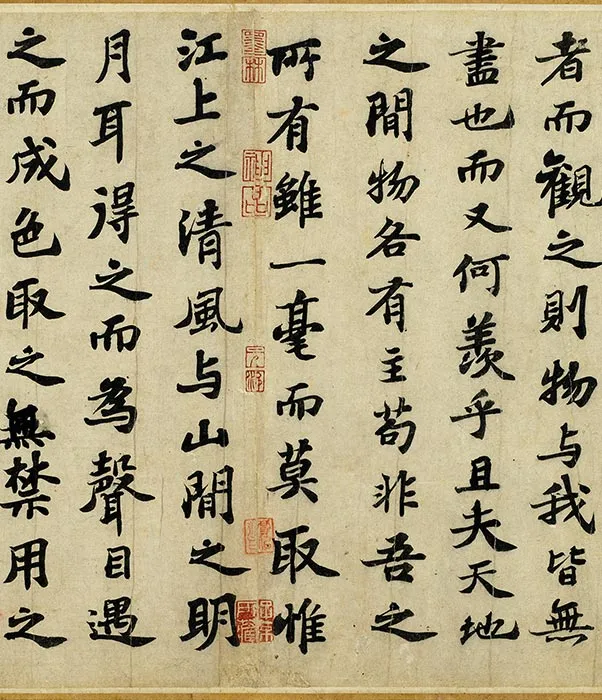 者而觀之則物与我皆無
盡也而又何羨乎且夫天地
之閒物各有主苟非吾之
所有雖一毫而莫取惟
墨林
神品
江上之清風与山閒之明
月耳得之而為聲目遇
之而成色取之無禁用之